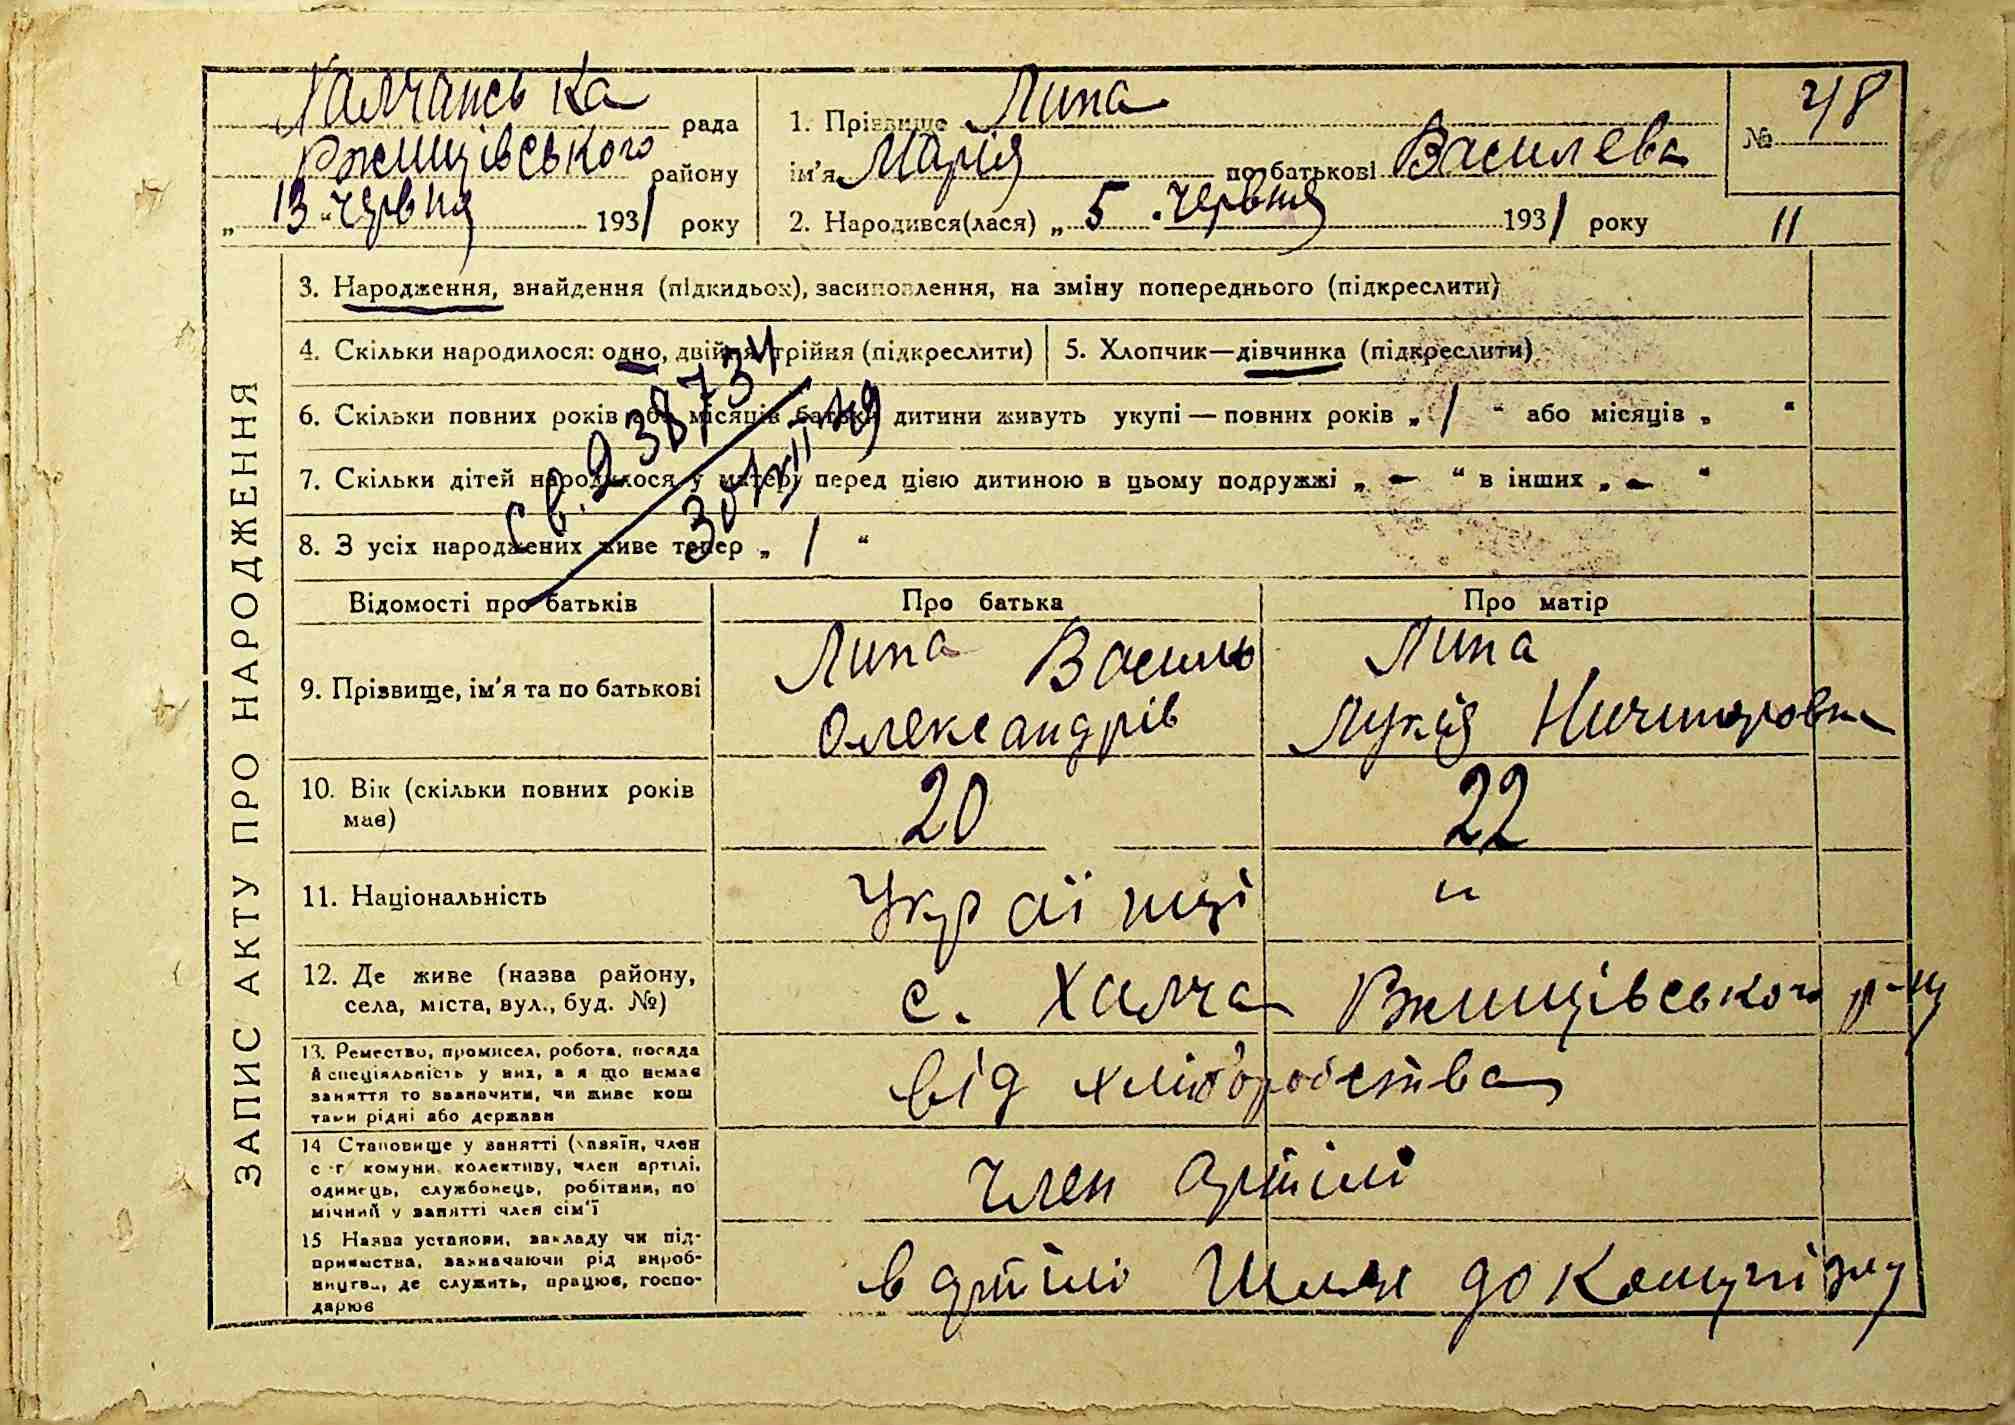 ЗАПИС АКТУ ПРО НАРОДЖЕННЯ
Халчанська рада
Ржищівського району
„13“ червня 1931 року
1. Прізвище Липа
ім'я Марія по батькові Василева
2. Народився(лася) „5“ червня 1931 року
№ 48
11
3. Народження, внайдення (підкидьох), засиновлення, на зміну попереднього (підкреслити)
4. Скільки народилося: одно, двійня, трійня (підкреслити)
5. Хлопчик—дівчинка (підкреслити)
6. Скільки повних років або місяців батьки дитини живуть укупі — повних років „1“ або місяців „ “
7. Скільки дітей народилося у матері перед цією дитиною в цьому подружжі „-“ в інших „-“
8. З усіх народжених живе тепер „1“
Св. 2 38734
30/XII 49
Відомості про батьків
Про батька
Про матір
9. Прізвище, ім'я та по батькові
Липа Василь
Олександрів
Липа
Лукія Ничипоровна
10. Вік (скільки повних років
має)
20
22
11. Національність
Українці
"
12. Де живе (назва району,
села, міста, вул., буд. №)
с. Халча Ржищівського р-ну
13. Ремество, промисел, робота, посада
й спеціяльність у них, а я що немає
заняття то зазначити, чи живе кош
тами рідні або держави
від хліборобства
14 Становище у занятті (хазяїн, член
с-г комуни, колективу, член артілі,
одинець, службовець, робітник, по
мічний у занятті член сім'ї
Член артілі
15 Назва установи, закладу чи під-
приємства, зазначаючи рід вироб-
ництва, де служить, працює, госпо-
дарює
в артілі Шлях до Комунізму